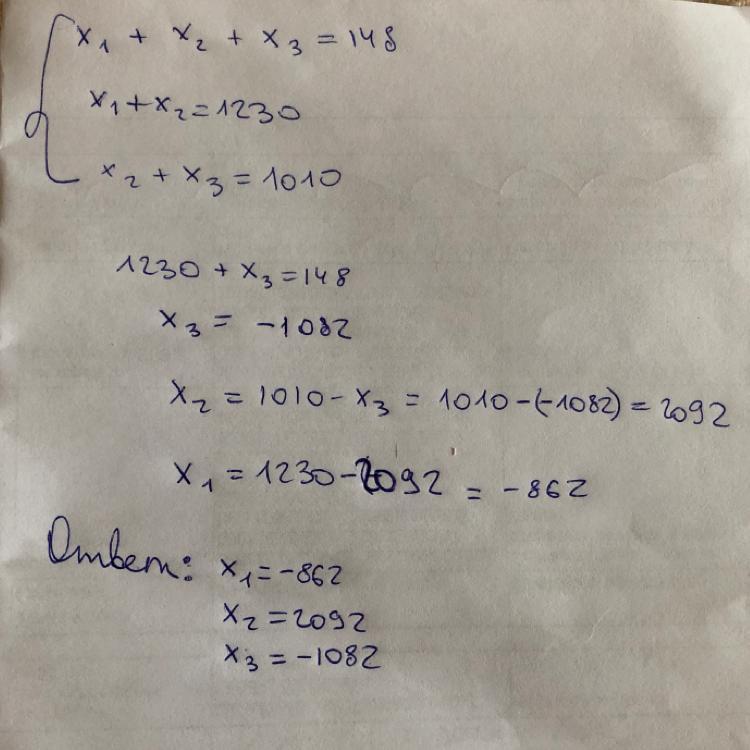 x₁ + x₂ + x₃ = 148
x₁ + x₂ = 1230
x₂ + x₃ = 1010
1230 + x₃ = 148
x₃ = -1082
x₂ = 1010 - x₃ = 1010 - (-1082) = 2092
x₁ = 1230 - 2092 = -862
Ответ: x₁ = -862
x₂ = 2092
x₃ = -1082